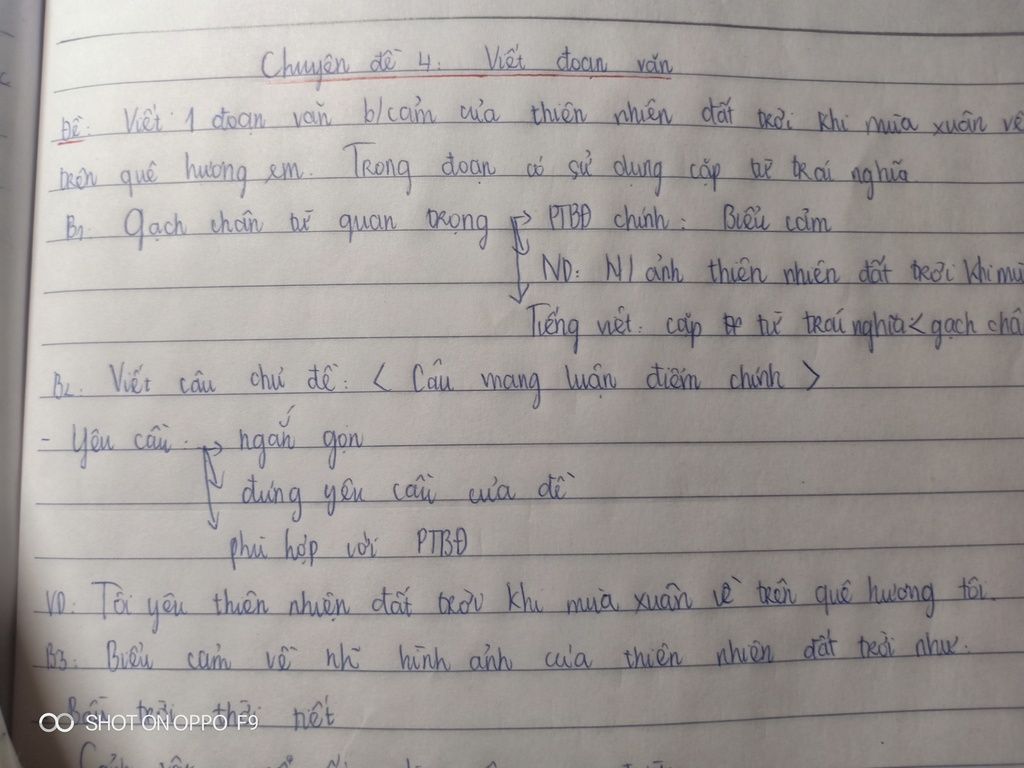 Chuyên đề 4: Viết đoạn văn
Đề: Viết 1 đoạn văn b/cảm của thiên nhiên đất trời khi mùa xuân về
trên quê hương em. Trong đoạn có sử dụng cặp từ trái nghĩa
B1. Gạch chân từ quan trọng → PTBĐ chính: Biểu cảm
ND: N/ ảnh thiên nhiên đất trời khi mù
Tiếng việt: cặp từ trái nghĩa < gạch châ
B2. Viết câu chủ đề: < Câu mang luận điểm chính >
- Yêu cầu: → ngắn gọn
đúng yêu cầu của đề
phù hợp với PTBĐ
VD: Tôi yêu thiên nhiện đất trời khi mùa xuân về trên quê hương tôi.
B3. Biểu cảm về nh~ hình ảnh của thiên nhiên đất trời như:
Bầu trời thời tiết
SHOT ON OPPO F9